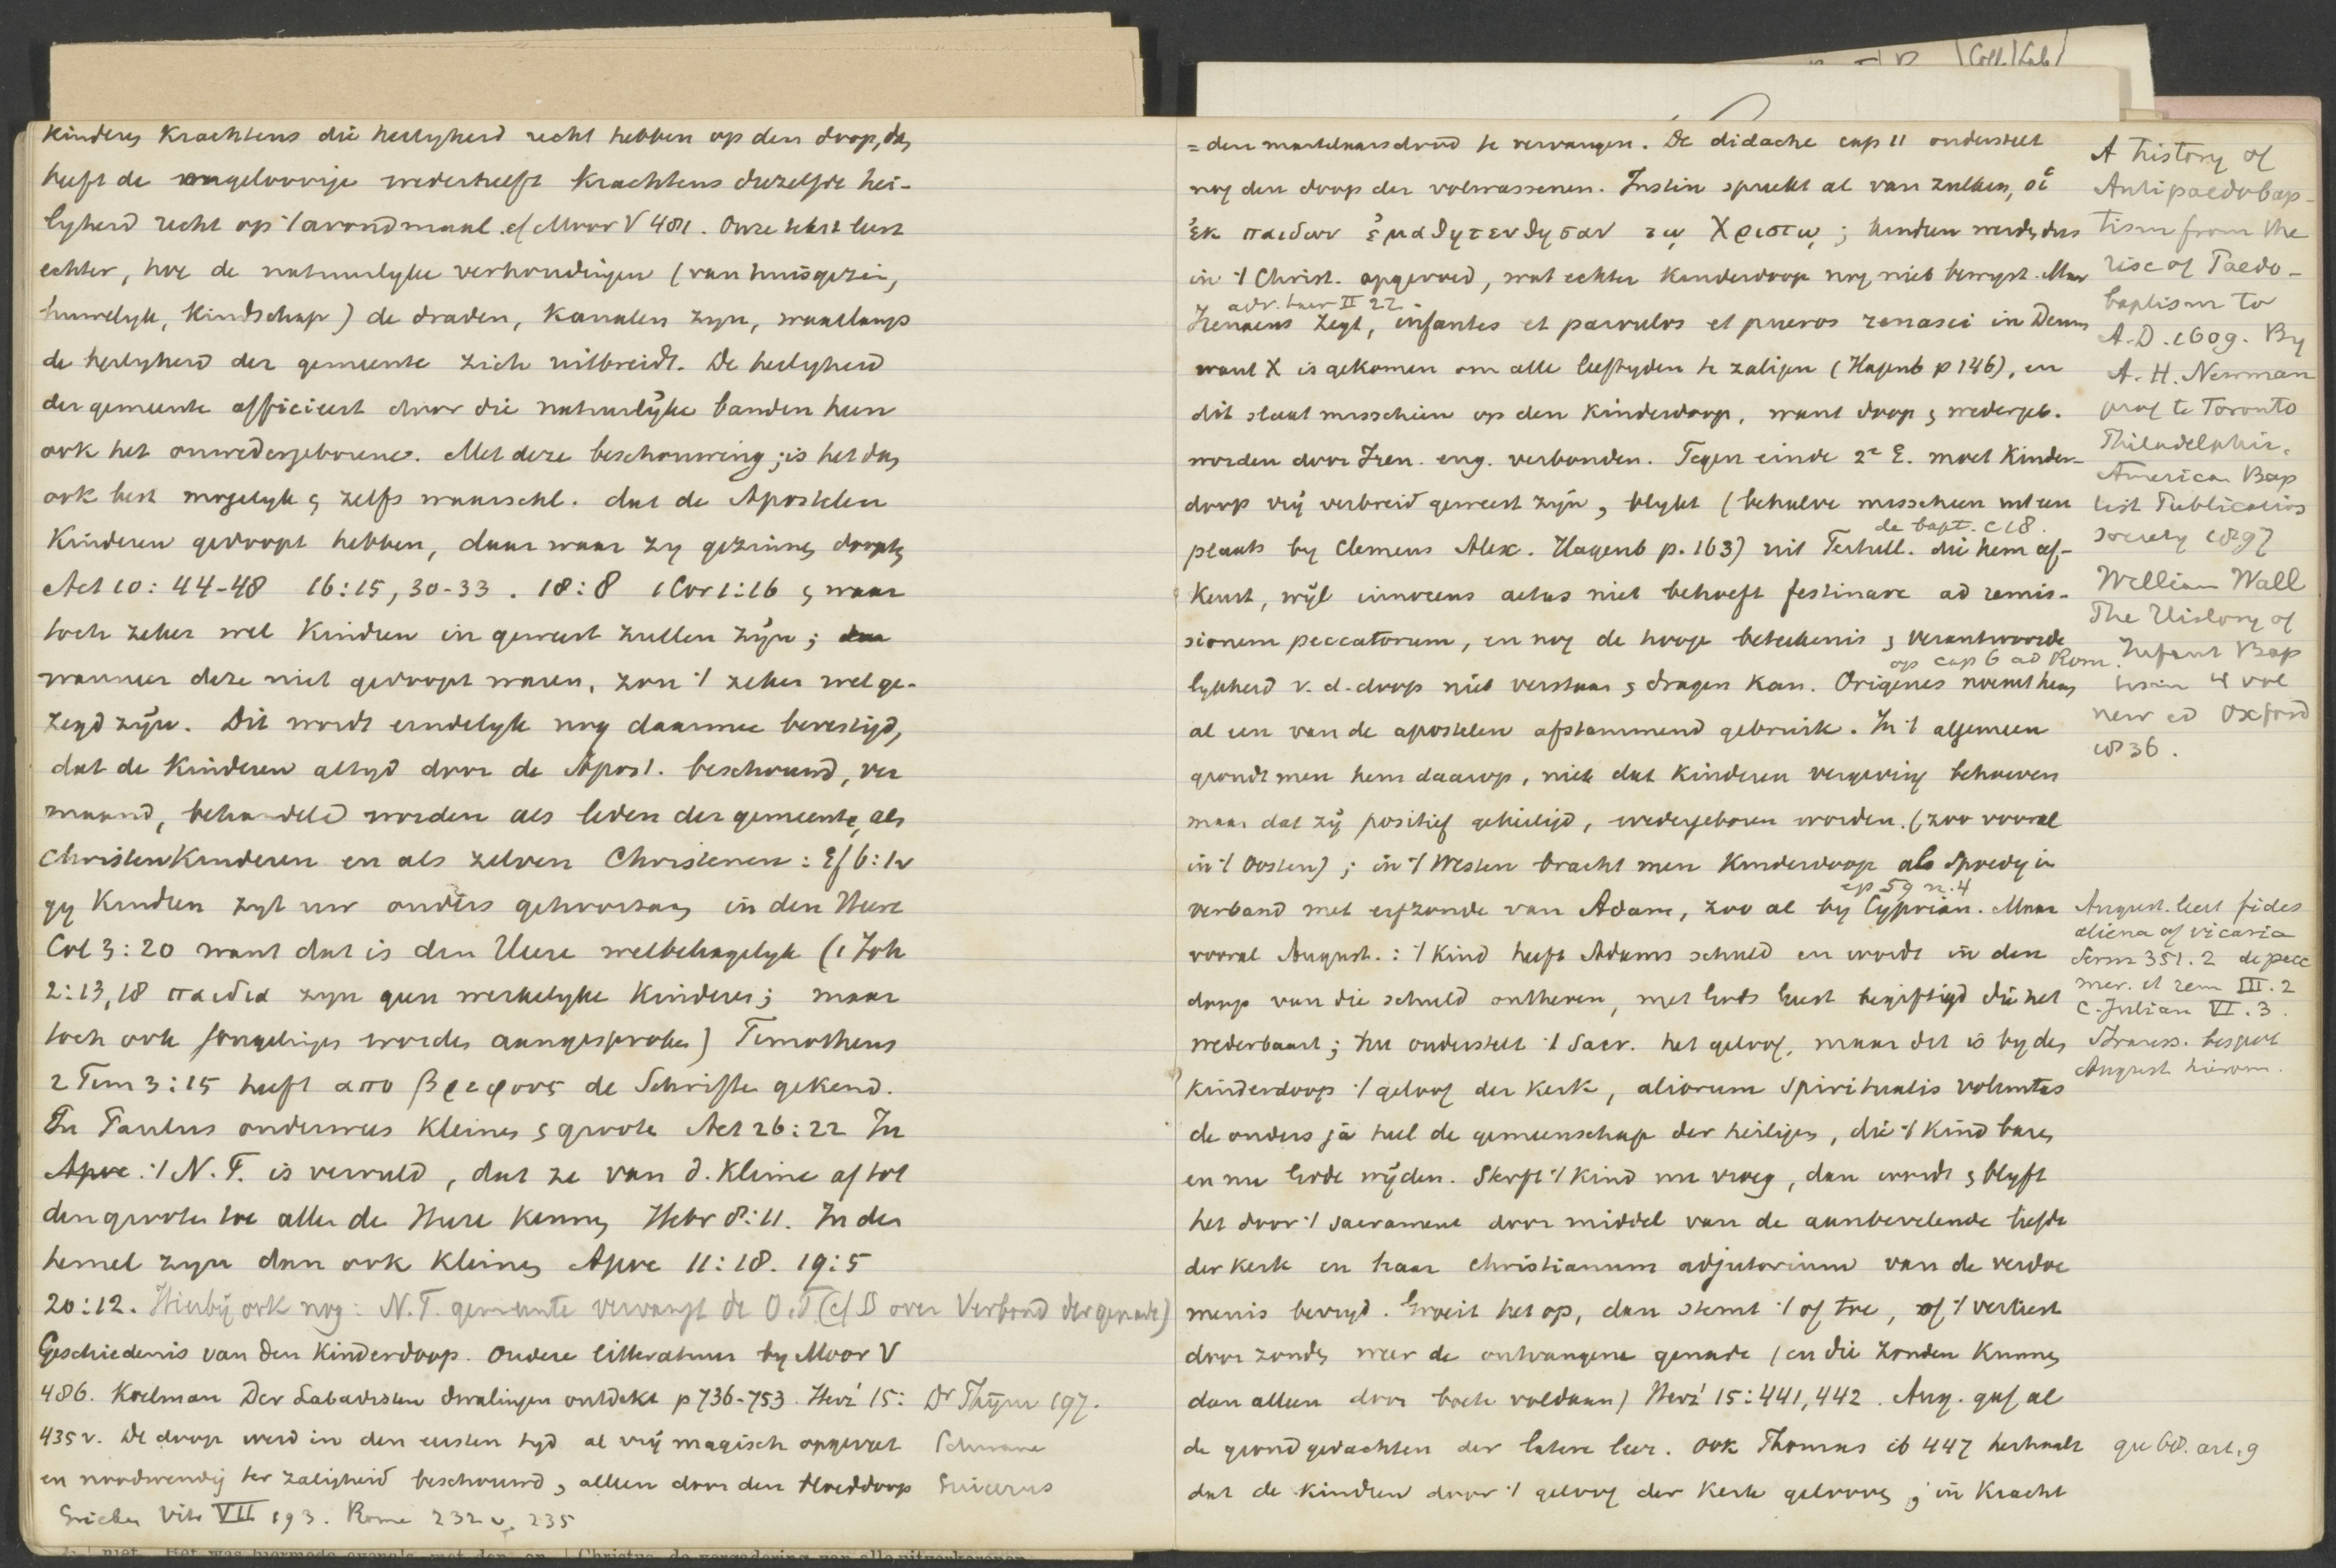 kinderen krachtens die heiligheid recht hebben op den doop, dan
heeft de ongeloovige wederhelft krachtens diezelfde hei-
ligheid recht op 't avondmaal. cf Moor V 481. Onze tekst leert
echter, hoe de natuurlyke verhoudingen (van huisgezin,
huwelyk, kindschap) de draden, kanalen zyn, waarlangs
de heiligheid der gemeente zich uitbreidt. De heiligheid
der gemeente afficieert door die natuurlyke banden heen
ook het onwedergeborene. Met deze beschouwing is het dan
ook best mogelyk en zelfs waarschl. dat de Apostelen
kinderen gedoopt hebben, daar waar zy gezinnen doopten
Act 10:44-48 16:15, 30-33. 18:8 1 Cor 1:16 en waar
toch zeker wel kindren in geweest zullen zyn;
wanneer deze niet gedoopt waren, zou 't zeker wel ge-
zegd zyn. Dit wordt eindelyk nog daarmee bevestigd,
dat de kinderen altyd door de Apost. beschouwd, ver
maand, behandeld worden als leden der gemeente, als
Christenkinderen en als zelven Christenen: Ef 6:1v
gy kindren zyt uw ouders gehoorzaam in den Heere
Col 3:20 want dat is den Heere welbehagelyk (1 Joh
2:13,18 παιδια zyn geen werkelyke kinderen; maar
toch ook jongelingen worden aangesproken) Timotheus
2 Tim 3:15 heeft απο βρεφους de Schriften gekend.
En Paulus onderwees kleinen en groote Act 26:22 In
Apoc. 't N.T. is vervuld, dat ze van d. kleine af tot
den grooten toe allen de Heere kennen Hebr 8:11. In den
hemel zyn dan ook kleinen Apoc 11:18. 19:5
20:12. Hierbij ook nog: N.T. gemeente vervangt de O.T. (cf § over Verbond der genade)
Geschiedenis van den Kinderdoop. Oudere litteratuur by Moor V
486. Koelman Der Labadisten dwalingen ontdekt p 736-753. Herz² 15: Dr Thÿm 197.
435v. De doop werd in den eersten tyd al vrij magisch opgevat Schwane
en noodwendig ter zaligheid beschouwd, alleen door den bloeddoop Suicerus
VII 193. Rome 232v. 235
= den martelaarsdood te vervangen. De didache cap 11 onderstelt
nog den doop der volwassenen. Justin spreekt al van zulken, οἱ
ἐκ παιδων ἐμαθητευθησαν τῳ Χριστῳ; kindren werden dus
in 't Christ. opgevoed, wat echter kinderdoop nog niet bewyst. Maar
adv. haer II 22.
Irenaeus zegt, infantes et parvulos et pueros renasci in Deum
want X is gekomen om alle leeftyden te zaligen (Hagenb p 146), en
dit slaat misschien op den kinderdoop, want doop en wedergeb.
worden door Iren. eng. verbonden. Tegen einde 2e E. moet kinder-
doop vrij verbreid geweest zyn, blykt (behalve misschien uit een
de bapt. c 18.
plaats by Clemens Alex. Hagenb p. 163) uit Tertull. die hem af-
keurt, wyl innocens aetas niet behoeft festinare ad remis-
sionem peccatorum, en nog de hooge beteekenis en verantwoorde
op cap 6 ad Rom.
lykheid v. d. doop niet verstaan en dragen kan. Origenes noemt hem
al een van de apostelen afstammend gebruik. In 't algemeen
grondt men hem daarop, niet dat kinderen vergeving behoeven
maar dat zy positief geheiligd, wedergeboren worden. (zoo vooral
in 't Oosten); in 't Westen bracht men kinderdoop als spoedig in
ep 59 n. 4
verband met erfzonde van Adam, zoo al by Cyprian. Maar
vooral August.: 't kind heeft Adams schuld en wordt in den
doop van die schuld ontheven, met Gods Geest begiftigd die het
wederbaart; nu onderstelt 't Sacr. het geloof, maar dit is by den
kinderdoop 't geloof der kerk, aliorum spiritualis voluntas
de ouders ja heel de gemeenschap der heiligen, die 't kind baren
en nu Gode wyden. Sterft 't kind nu vroeg, dan wordt en blyft
het door 't sacrament door middel van de aanbevelende liefde
der kerk en haar christianum adjutorium van de verdoe
menis bevryd. Groeit het op, dan stemt 't of toe, of 't verliest
door zonden weer de ontvangene genade (en die zonden kunnen
dan alleen door boete voldaan) Herz² 15:441,442. Aug. gaf al
de grondgedachten der latere leer. Ook Thomas ib 447 herhaalt
dat de kindren door 't geloof der kerk gelooven; in kracht
A history of
Antipaedobap-
tism from the
rise of Paedo-
baptism to
A.D. 1609. By
A. H. Newman
prof te Toronto
Philadelphia.
American Bap
tist Publication
society 1897
William Wall
The History of
Infant Bap
tism 4 vol
new ed Oxford
1836.
August. leert fides
aliena of vicaria
Serm 351.2 de pecc
mer. et rem III.2
c. Julian VI.3.
bespot
August hierom.
qu 68. art. 9